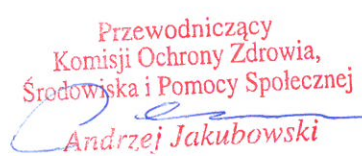 Przewodniczący
Komisji Ochrony Zdrowia,
Środowiska i Pomocy Społecznej
Andrzej Jakubowski